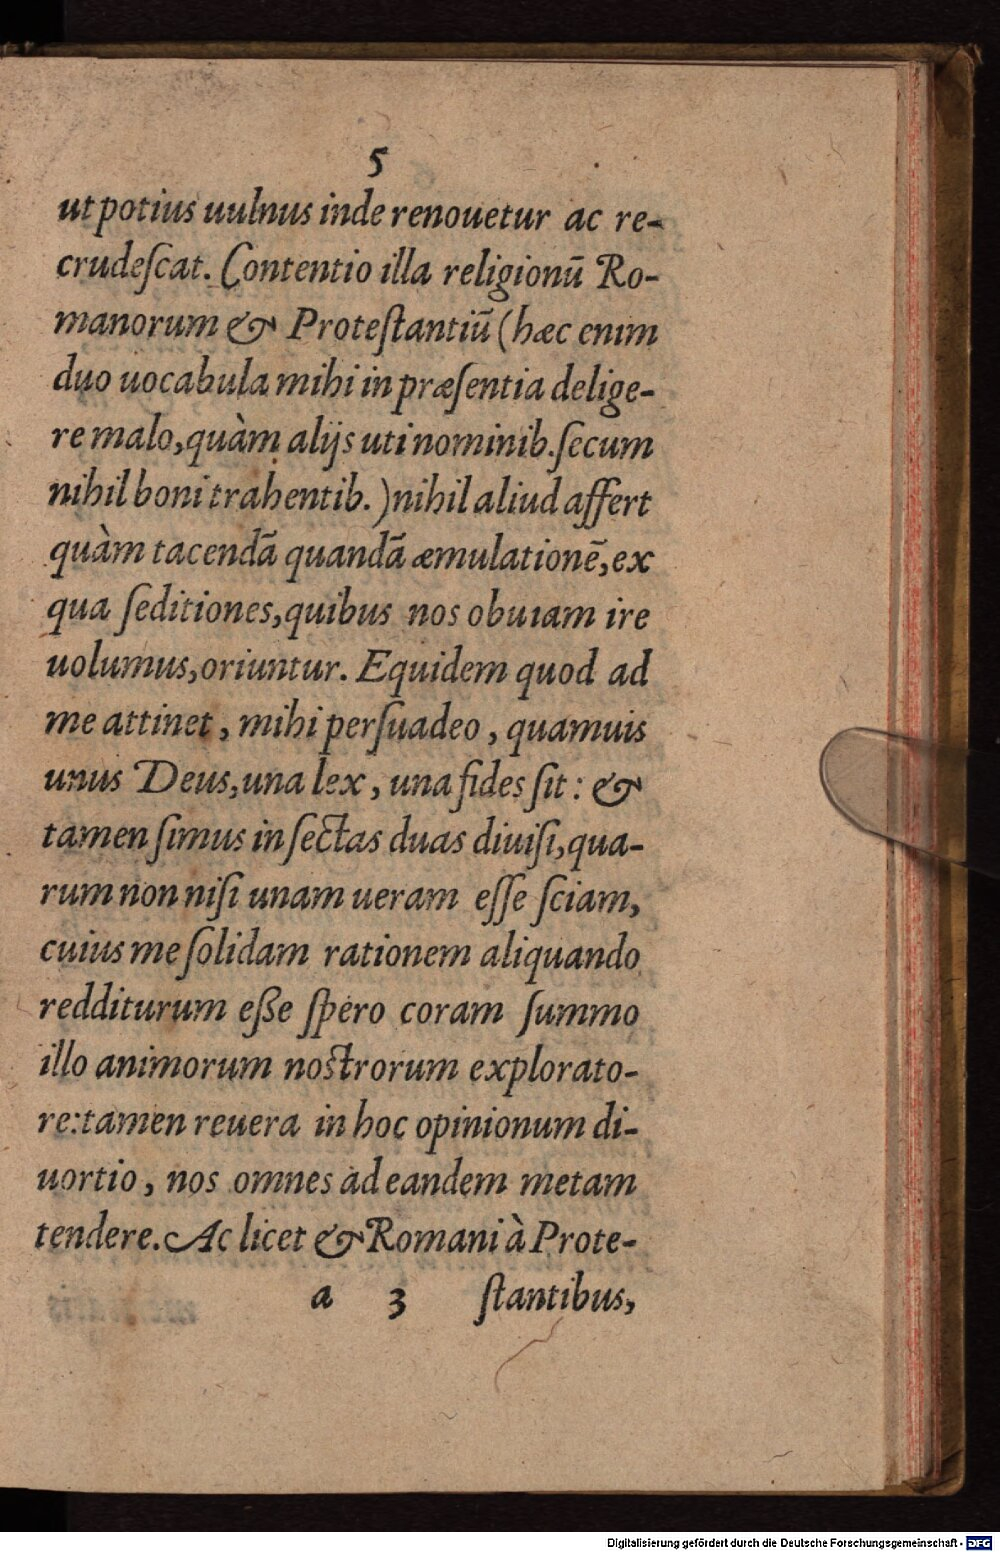 5
ut potius uulnus inde renouetur ac re-
crudeſcat. Contentio illa religionū Ro-
manorum & Proteſtantiū (hæc enim
duo uocabula mihi in præſentia delige-
re malo, quàm alijs uti nominib. ſecum
nihil boni trahentib.) nihil aliud affert
quàm tacendā quandā æmulationē, ex
qua ſeditiones, quibus nos obuiam ire
uolumus, oriuntur. Equidem quod ad
me attinet, mihi perſuadeo, quamuis
unus Deus, una lex, una fides ſit: &
tamen ſimus in ſectas duas diuiſi, qua-
rum non niſi unam ueram eſſe ſciam,
cuius me ſolidam rationem aliquando
redditurum eſſe ſpero coram ſummo
illo animorum noſtrorum explorato-
re: tamen reuera in hoc opinionum di-
uortio, nos omnes ad eandem metam
tendere. Ac licet & Romani à Prote-
a 3 ſtantibus,
Digitalisierung gefördert durch die Deutsche Forschungsgemeinschaft - DFG